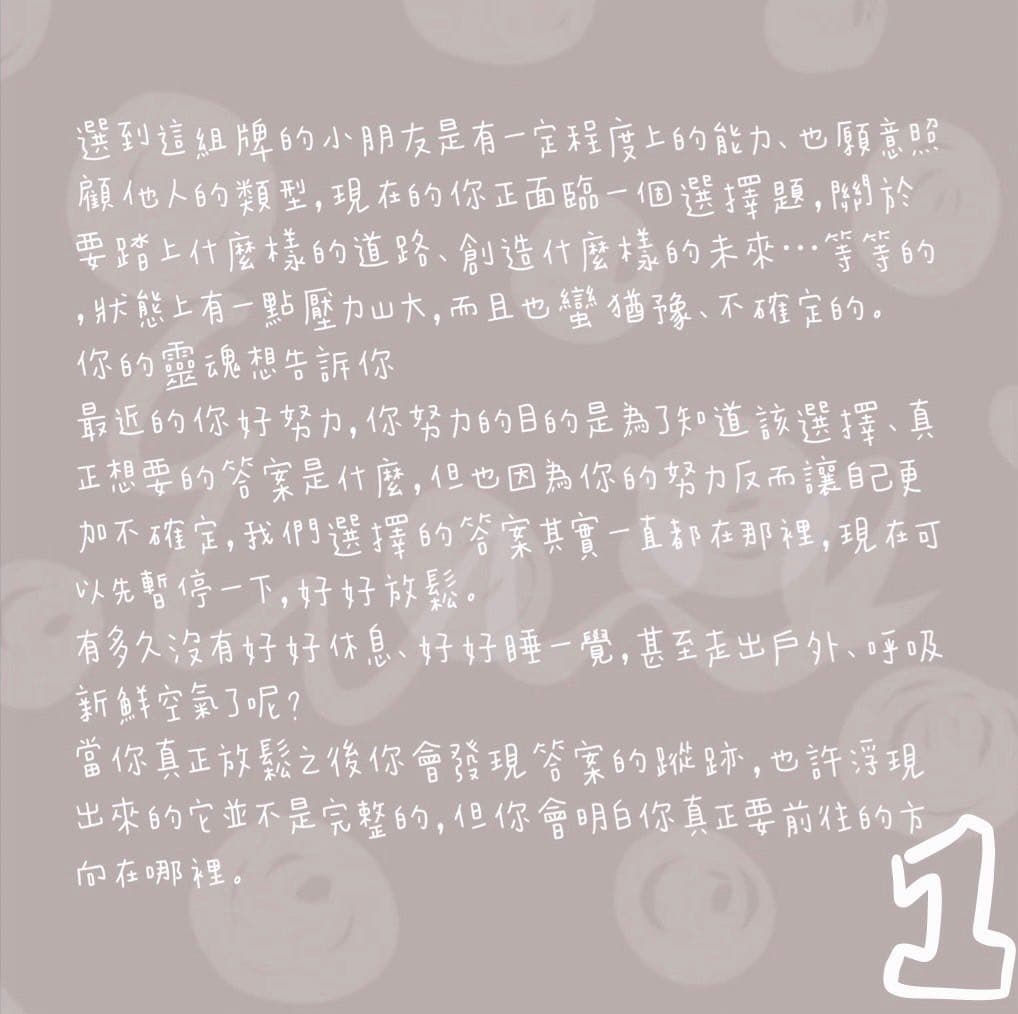 選到這組牌的小朋友是有一定程度上的能力、也願意照
顧他人的類型,現在的你正面臨一個選擇題,關於
要踏上什麼樣的道路、創造什麼樣的未來…等等的
,狀態上有一點壓力山大,而且也蠻猶豫、不確定的。
你的靈魂想告訴你
最近的你好努力,你努力的目的是為了知道該選擇、真
正想要的答案是什麼,但也因為你的努力反而讓自己更
加不確定,我們選擇的答案其實一直都在那裡,現在可
以先暫停一下,好好放鬆。
有多久沒有好好休息、好好睡一覺,甚至走出戶外、呼吸
新鮮空氣了呢?
當你真正放鬆之後你會發現答案的蹤跡,也許浮現
出來的它並不是完整的,但你會明白你真正要前往的方
向在哪裡。
1